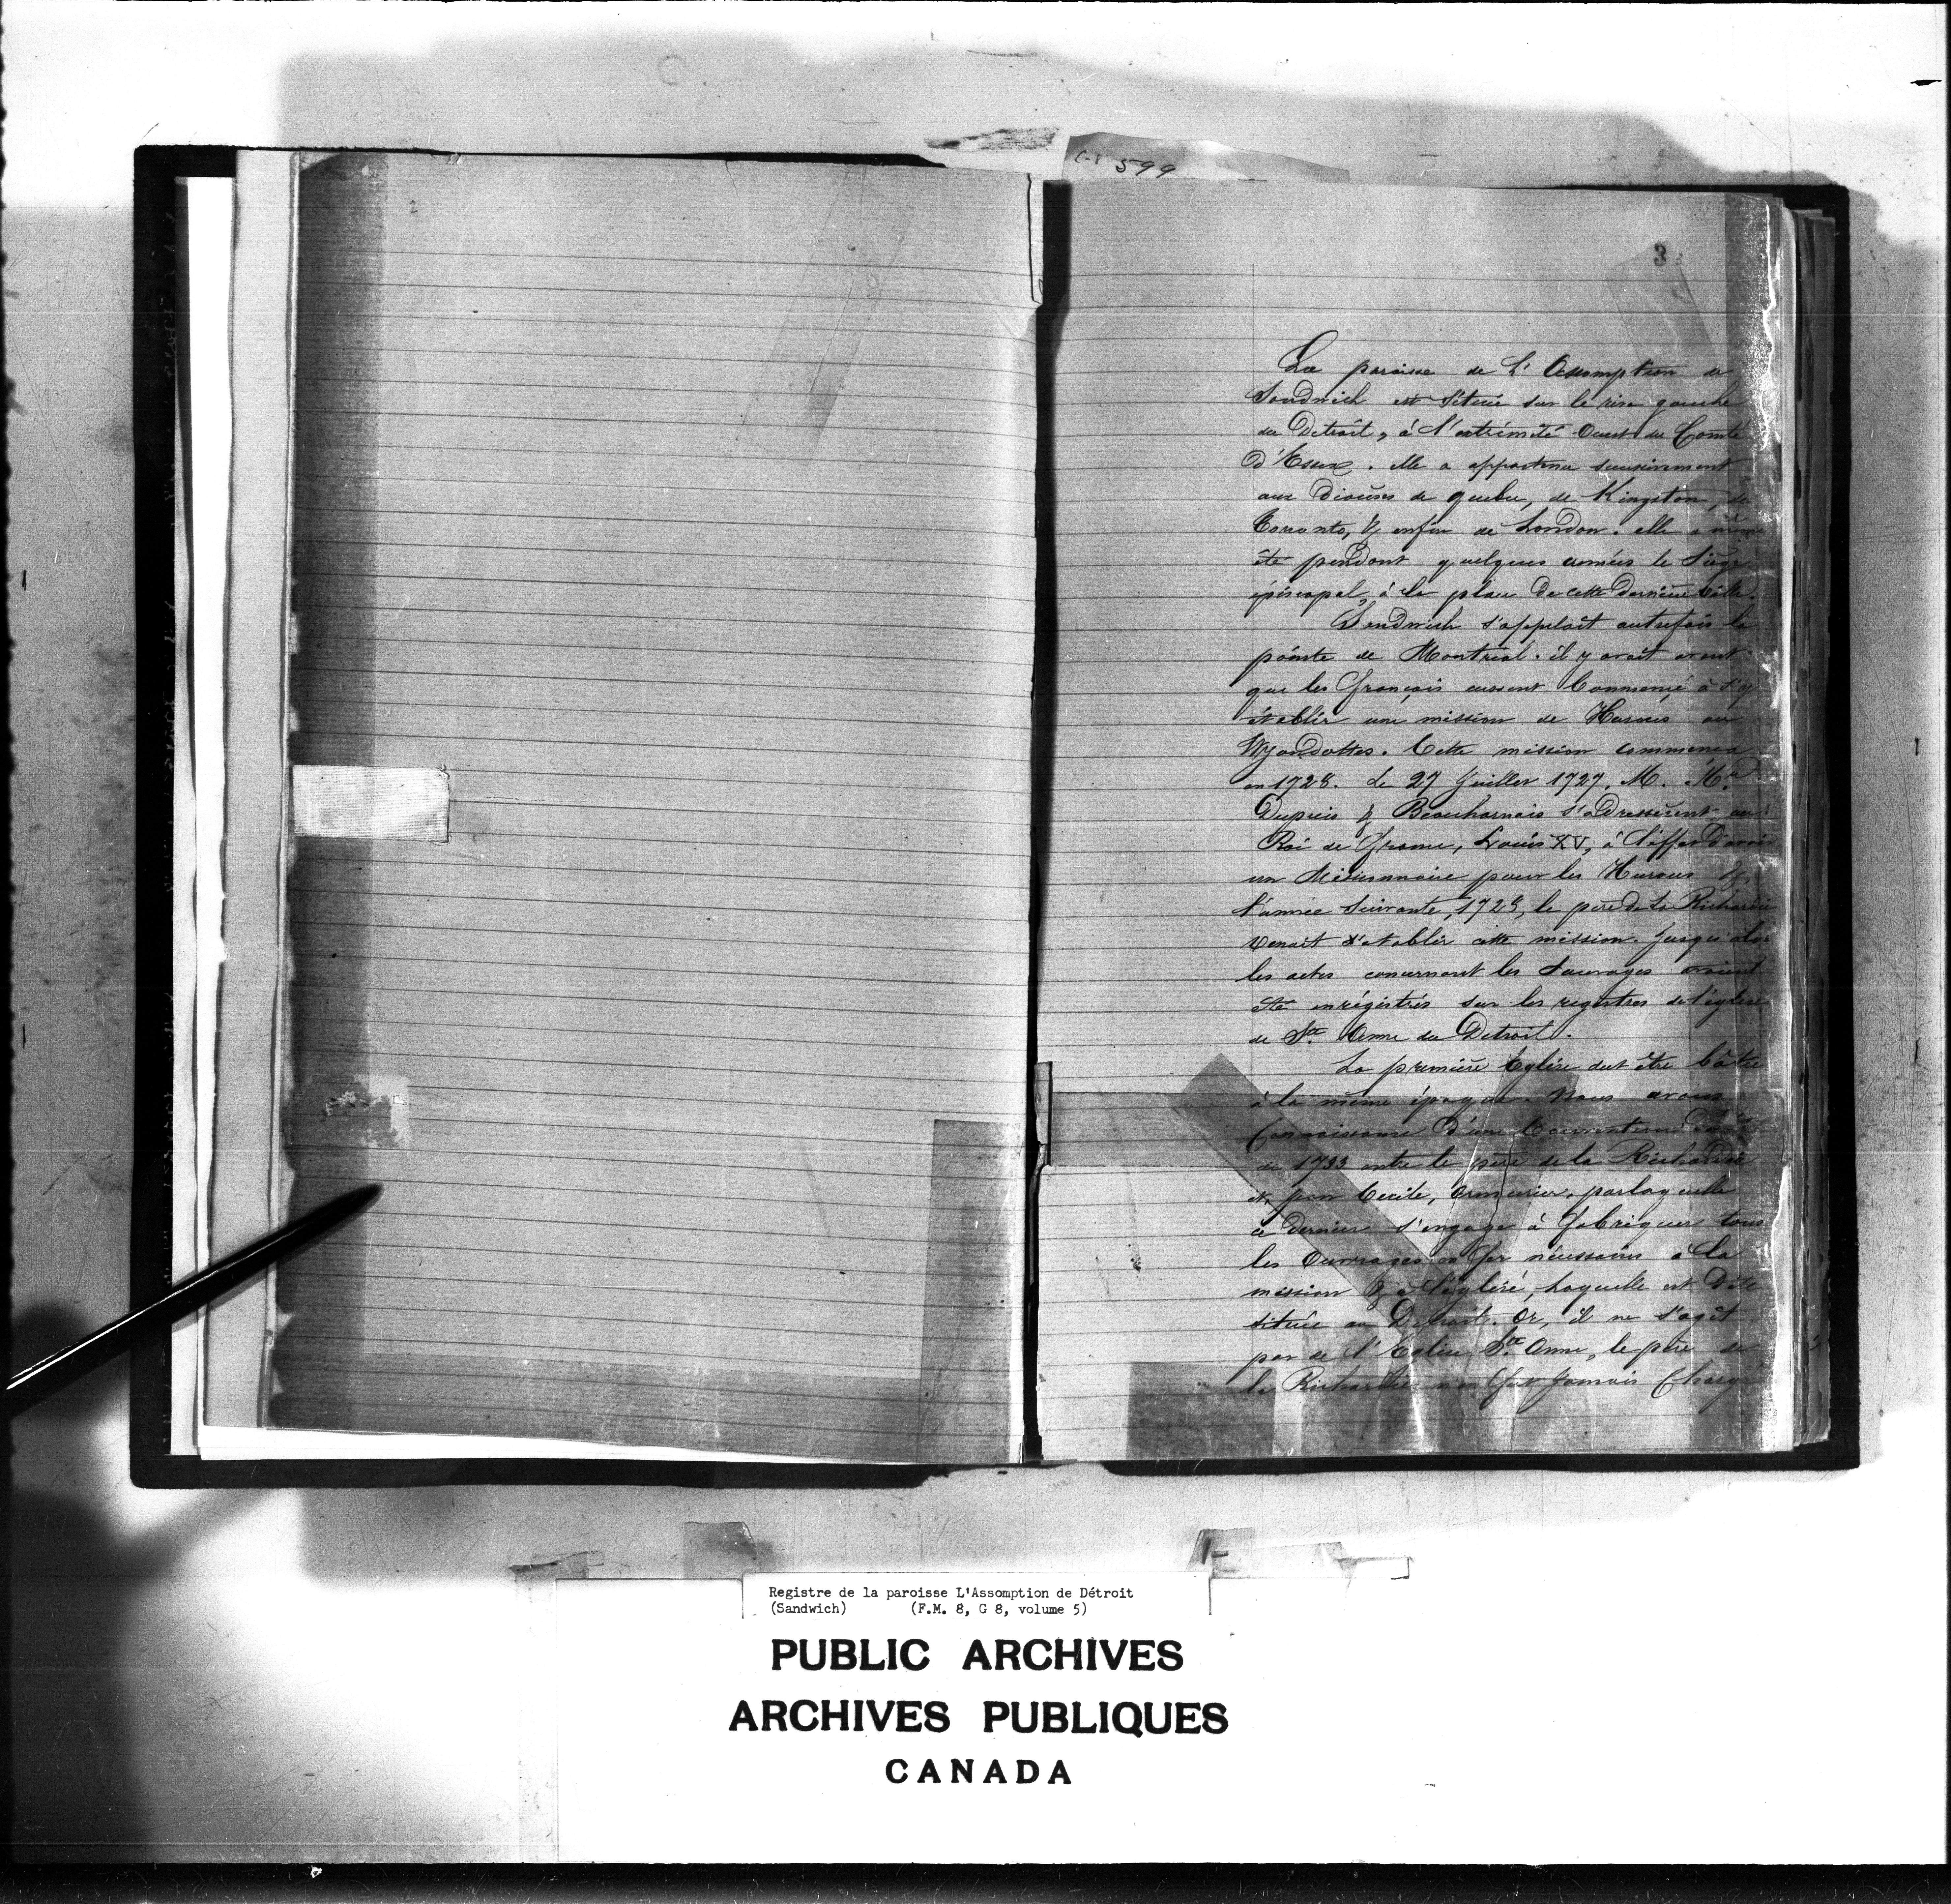 C-8 599
2
3 3
La paroisse de L'Assomption de
Sandwich est située sur le rive gauche
du Détroit, à l'extrémité Ouest du Comté
D'Essex. elle a appartenu successivement
aux Diocèses de quebec, de Kingston, de
Toronto, & enfin de London. elle a même
été pendant quelques années le Siège
épiscopal, à la place de cette dernière Ville.
Sandwich s'appelait autrefois la
pointe de Montréal. il y avait avant
que les français eussent Commencé à s'y
établir une mission de Hurons ou
Wyandottes. Cette mission commença
en 1728. Le 27 Juillet 1727, M. Mr
Dupuis & Beauharnais s'adressèrent au
Roi de France, Louis XV, à l'effet d'avoir
un Missionnaire pour les Hurons &
l'année Suivante, 1728, le père de la Richardie
Venait établir cette mission. Jusqu'alors
les actes concernant les Sauvages avaient
été enrégistrés sur les registres de l'église
de Ste Anne du Detroit.
La première Eglise dut être bâtie
à la même époque. Nous avons
Connaissance d'une Convention
de 1733 entre le père de la Richardie
et Jean Cecile, Armurier, par laquelle
ce Dernier s'engage à fabriquer tous
les Ouvrages en fer nécessaires à la
mission & à l'église, laquelle est Dite
située au Detroit. Or, il ne s'agit
pas de l'Eglise Ste Anne, le père de
la Richardie n'en fut Jamais Chargé
Registre de la paroisse L'Assomption de Détroit
(Sandwich) (F.M. 8, G 8, volume 5)
PUBLIC ARCHIVES
ARCHIVES PUBLIQUES
CANADA